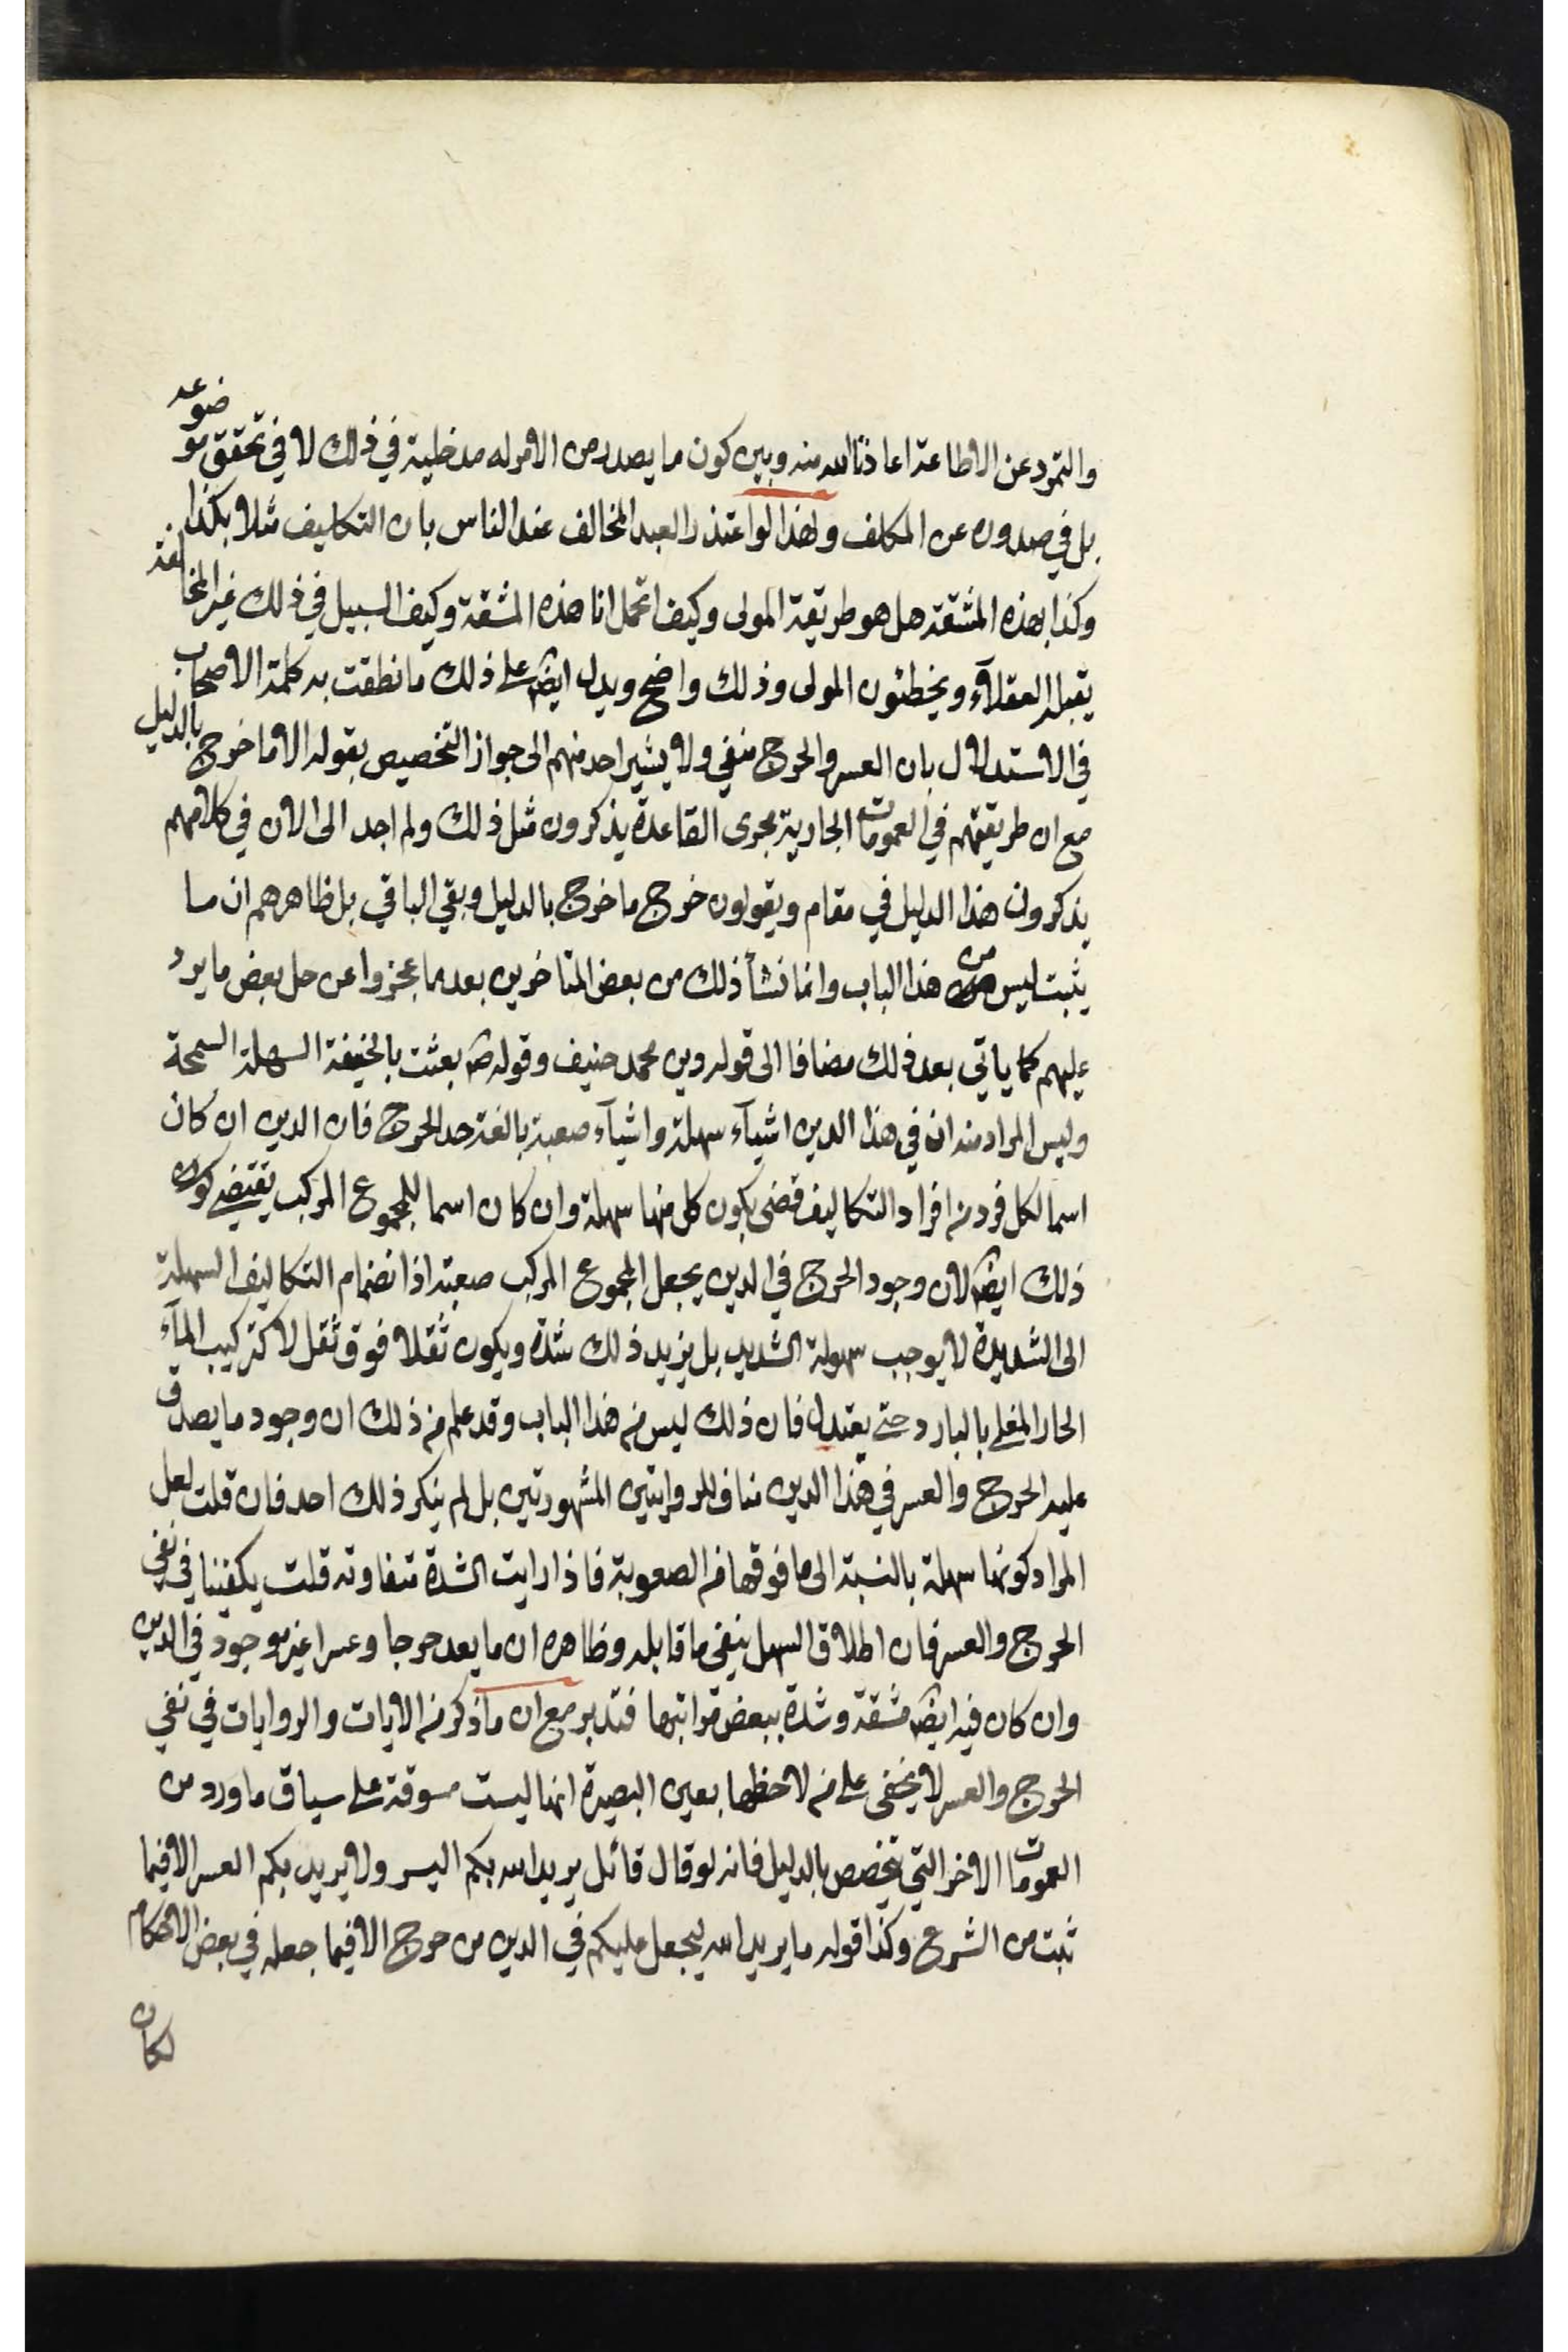 والتمرد عن الاطاعة اعاذنا الله منه وبين كون ما يصدر من الامر له مدخلية في ذلك لا في تحقق موضوعه
بل في صدوره عن المكلف ولهذا لو اعتذر العبد المخالف عند الناس بان التكاليف مثلا بكذا
وكذا بهذه المشقة هل هو طريقة المولى وكيف اتحمل انا هذه المشقة وكيف السبيل في ذلك غير المخالفة
يقبله العقلاء ويخطئون المولى وذلك واضح ويدل ايضا على ذلك ما نطقت به كلمة الاصحاب
في الاستدلال بان العسر والحرج منفي ولا يشير احد منهم الى جواز التخصيص بقوله الا ما خرج بالدليل
مع ان طريقتهم في العمومات الجارية مجرى القاعدة يذكرون مثل ذلك ولم اجد الى الان في كلامهم
يذكرون هذا الدليل في مقام ويقولون خرج ما خرج بالدليل وبقي الباقي بل ظاهرهم ان ما
يثبت ليس من هذا الباب وانما نشأ ذلك من بعض المتاخرين بعد ما عجزوا عن حل بعض ما يرد
عليهم كما ياتي بعد ذلك مضافا الى قوله دين محمد حنيف وقوله ص بعثت بالحنيفة السهلة السمحة
وليس المراد منه ان في هذا الدين اشياء سهلة واشياء صعبة بالغة حد الحرج فان الدين ان كان
اسما لكل فرد من افراد التكاليف قضى بكون كل منها سهلة وان كان اسما للمجموع المركب يقتضي كون
ذلك ايضا لان وجود الحرج في الدين يجعل المجموع المركب صعبة اذ انضمام التكاليف السهلة
الى الشديدة لا يوجب سهولة الشديد بل يزيد ذلك شدة ويكون ثقلا فوق ثقل لا كتركيب الماء
الحار المغلي بالبارد حتى يعتدل فان ذلك ليس من هذا الباب وقد علم من ذلك ان وجود ما يصدق
عليه الحرج والعسر في هذا الدين مناف للروايتين المشهورتين بل لم ينكر ذلك احد فان قلت لعل
المراد كونها سهلة بالنسبة الى ما فوقها من الصعوبة فاذا رايت الشدة متفاوتة قلت يكفينا في نفي
الحرج والعسر فان اطلاق السهل ينفي ما قابله وظاهره ان ما يعد حرجا وعسرا غير موجود في الدين
وان كان فيه ايضا مشقة وشدة ببعض مراتبها فتدبر مع ان ما ذكر من الايات والروايات في نفي
الحرج والعسر لا يخفى على من لاحظها بعين البصيرة انها ليست مسوقة على سياق ما ورد من
العمومات الاخر التي تخصص بالدليل فانه لو قال قائل يريد الله بكم اليسر ولا يريد بكم العسر الا فيما
ثبت من الشرع وكذا قوله ما يريد الله ليجعل عليكم في الدين من حرج الا فيما جعله في بعض الاحكام
لكان